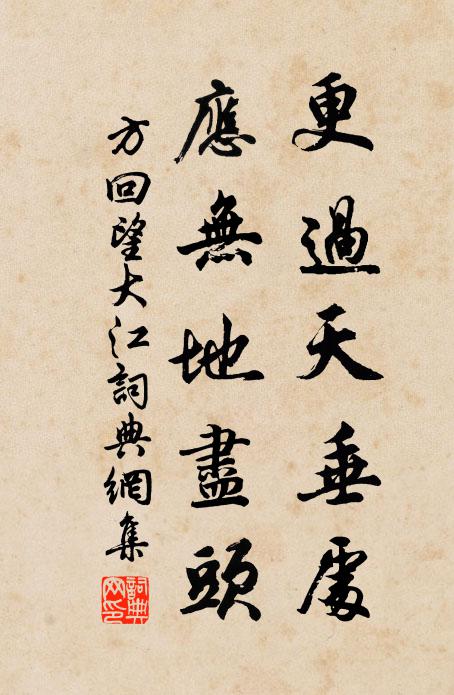 更過天垂處
應無地盡頭
方回望大江詞典網集
詞典網印